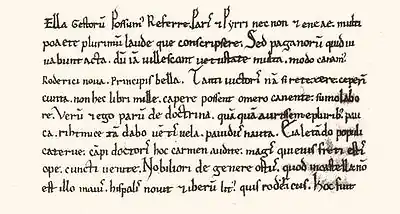 Ella gestorũ possum' referre. Paris & Pyrri nec non & eneae. multi
poaete plurimũ laude que conscripsere. Sed paganorũ quid iu
uabunt acta. dũ iã uillescant uetustate multa. modo canam'
Roderici noua. Principis bella. Tanti uictoris nã si retexere ceperĩ
cunta. non hec libri mille. capere possent omero canente. sumo labo
re. Verũ & ego parũ de doctrina. quã quã aurissem e pluribus pau
ca. rihtmice tã dabo uentis uela. pauidus nauta. Eia letãdo populi
caterue. cãpi doctoris hoc carmen audite. magis qui eius freti estis
ope. cuncti uenite. Nobiliori de genere ortus. quod in castella nõ
est illo maius. hispalis nouit & iberũ litus quis rodericus. Hoc fuit